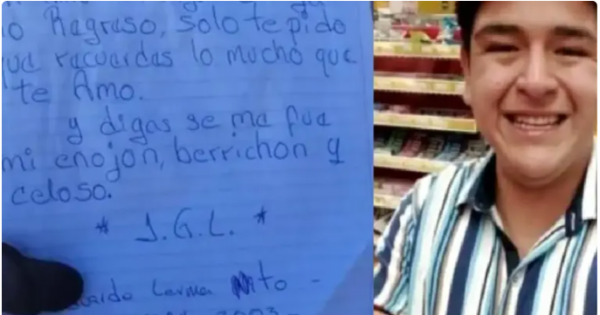 Ragraso, solo te pido
qua racuardas lo mucho que
te Amo.
y digas se ma fua
mi enojon, berrichon y
celoso.
* J.G.L. *
Lerma